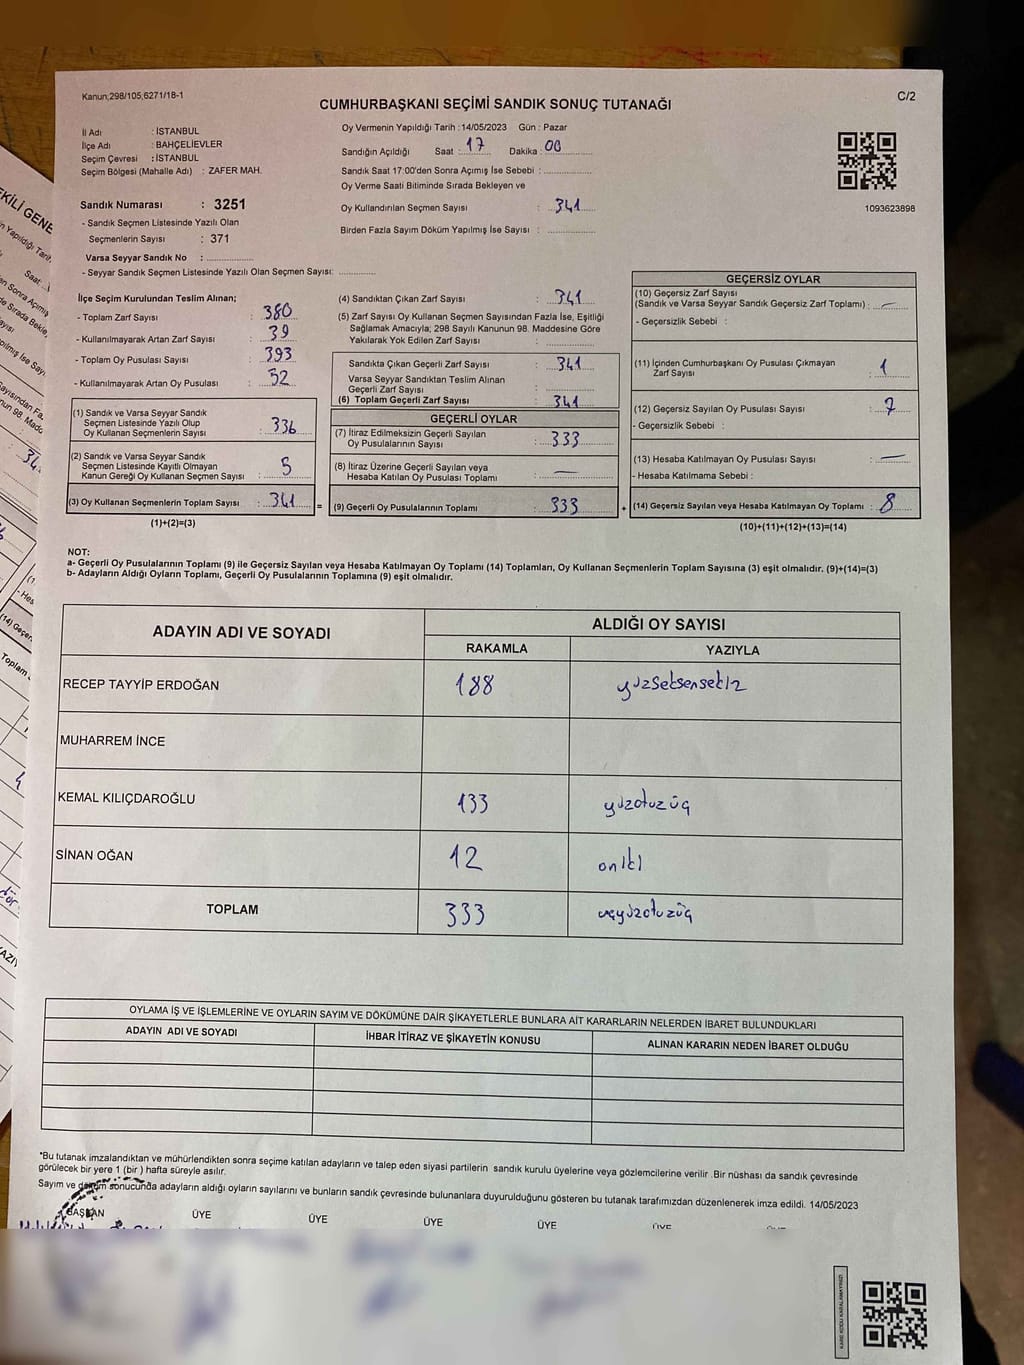 Kanun,298/105,6271/18-1
C/2
CUMHURBAŞKANI SEÇİMİ SANDIK SONUÇ TUTANAĞI
İl Adı : İSTANBUL
İlçe Adı : BAHÇELİEVLER
Seçim Çevresi : İSTANBUL
Seçim Bölgesi (Mahalle Adı) : ZAFER MAH.
Oy Vermenin Yapıldığı Tarih :14/05/2023 Gün : Pazar
Sandığın Açıldığı Saat : 17 Dakika : 00
Sandık Saat 17:00'den Sonra Açımış İse Sebebi :
Oy Verme Saati Bitiminde Sırada Bekleyen ve
Oy Kullandırılan Seçmen Sayısı : 341
Birden Fazla Sayım Döküm Yapılmış İse Sayısı :
1093623898
Sandık Numarası : 3251
- Sandık Seçmen Listesinde Yazılı Olan
Seçmenlerin Sayısı : 371
Varsa Seyyar Sandık No :
- Seyyar Sandık Seçmen Listesinde Yazılı Olan Seçmen Sayısı:
İlçe Seçim Kurulundan Teslim Alınan;
- Toplam Zarf Sayısı : 380
- Kullanılmayarak Artan Zarf Sayısı : 39
- Toplam Oy Pusulası Sayısı : 393
- Kullanılmayarak Artan Oy Pusulası : 52
(1) Sandık ve Varsa Seyyar Sandık
Seçmen Listesinde Yazılı Olup
Oy Kullanan Seçmenlerin Sayısı : 336
(2) Sandık ve Varsa Seyyar Sandık
Seçmen Listesinde Kayıtlı Olmayan
Kanun Gereği Oy Kullanan Seçmen Sayısı : 5
(3) Oy Kullanan Seçmenlerin Toplam Sayısı : 341 =
(1)+(2)=(3)
(4) Sandıktan Çıkan Zarf Sayısı : 341
(5) Zarf Sayısı Oy Kullanan Seçmen Sayısından Fazla İse, Eşitliği
Sağlamak Amacıyla; 298 Sayılı Kanunun 98. Maddesine Göre
Yakılarak Yok Edilen Zarf Sayısı :
Sandıkta Çıkan Geçerli Zarf Sayısı : 341
Varsa Seyyar Sandıktan Teslim Alınan
Geçerli Zarf Sayısı :
(6) Toplam Geçerli Zarf Sayısı : 341
GEÇERLİ OYLAR
(7) İtiraz Edilmeksizin Geçerli Sayılan
Oy Pusulalarının Sayısı : 333
(8) İtiraz Üzerine Geçerli Sayılan veya
Hesaba Katılan Oy Pusulası Toplamı : —
(9) Geçerli Oy Pusulalarının Toplamı : 333 +
GEÇERSİZ OYLAR
(10) Geçersiz Zarf Sayısı
(Sandık ve Varsa Seyyar Sandık Geçersiz Zarf Toplamı) : —
- Geçersizlik Sebebi :
(11) İçinden Cumhurbaşkanı Oy Pusulası Çıkmayan
Zarf Sayısı : 1
(12) Geçersiz Sayılan Oy Pusulası Sayısı : 7
- Geçersizlik Sebebi :
(13) Hesaba Katılmayan Oy Pusulası Sayısı : —
- Hesaba Katılmama Sebebi :
(14) Geçersiz Sayılan veya Hesaba Katılmayan Oy Toplamı : 8
(10)+(11)+(12)+(13)=(14)
NOT:
a- Geçerli Oy Pusulalarının Toplamı (9) ile Geçersiz Sayılan veya Hesaba Katılmayan Oy Toplamı (14) Toplamları, Oy Kullanan Seçmenlerin Toplam Sayısına (3) eşit olmalıdır. (9)+(14)=(3)
b- Adayların Aldığı Oyların Toplamı, Geçerli Oy Pusulalarının Toplamına (9) eşit olmalıdır.
ADAYIN ADI VE SOYADI ALDIĞI OY SAYISI
RAKAMLA YAZIYLA
RECEP TAYYİP ERDOĞAN 188 yüzseksensekiz
MUHARREM İNCE
KEMAL KILIÇDAROĞLU 133 yüzotuzüç
SİNAN OĞAN 12 oniki
TOPLAM 333 üçyüzotuzüç
OYLAMA İŞ VE İŞLEMLERİNE VE OYLARIN SAYIM VE DÖKÜMÜNE DAİR ŞİKAYETLERLE BUNLARA AİT KARARLARIN NELERDEN İBARET BULUNDUKLARI
ADAYIN ADI VE SOYADI İHBAR İTİRAZ VE ŞİKAYETİN KONUSU ALINAN KARARIN NEDEN İBARET OLDUĞU
*Bu tutanak imzalandıktan ve mühürlendikten sonra seçime katılan adayların ve talep eden siyasi partilerin sandık kurulu üyelerine veya gözlemcilerine verilir .Bir nüshası da sandık çevresinde
görülecek bir yere 1 (bir ) hafta süreyle asılır.
Sayım ve döküm sonucunda adayların aldığı oyların sayılarını ve bunların sandık çevresinde bulunanlara duyurulduğunu gösteren bu tutanak tarafımızdan düzenlenerek imza edildi. 14/05/2023
BAŞKAN ÜYE ÜYE ÜYE ÜYE ÜYE